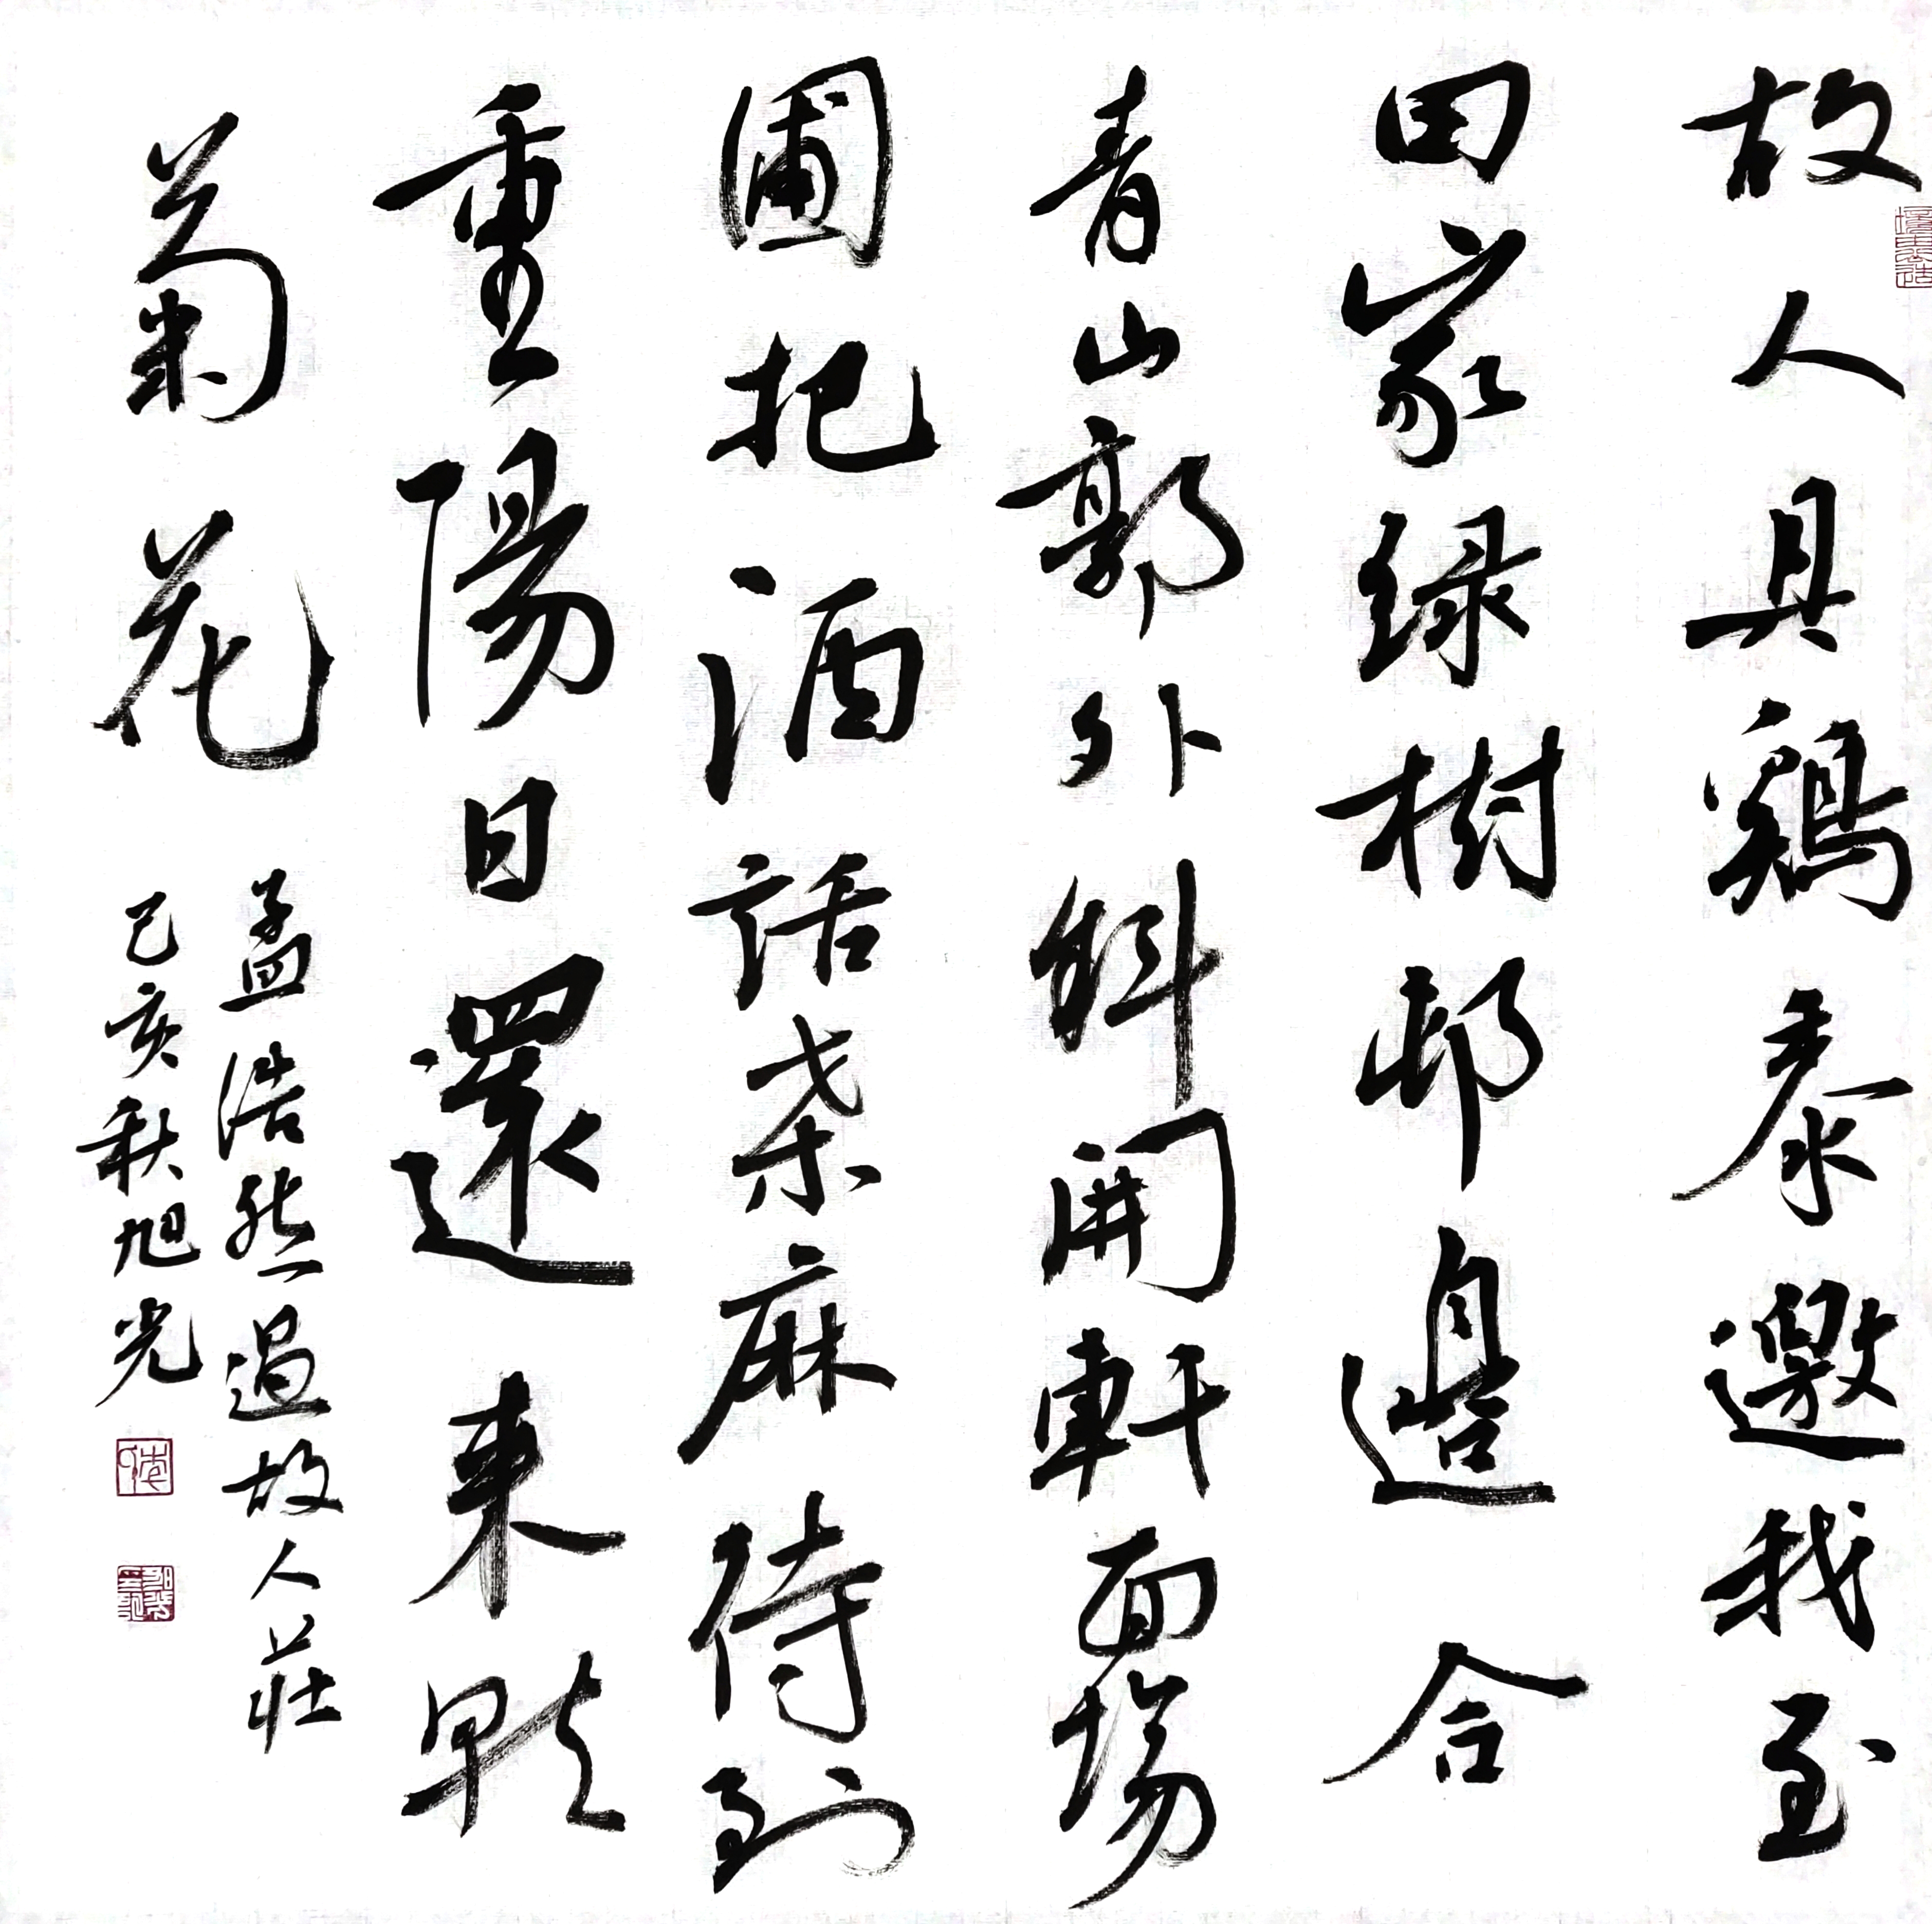 故人具鷄黍邀我至
田家绿樹邨邊合
青山郭外斜開軒面場
圃把酒話桑麻待到
重陽日還来就
菊花
孟浩然過故人莊
己亥秋旭光